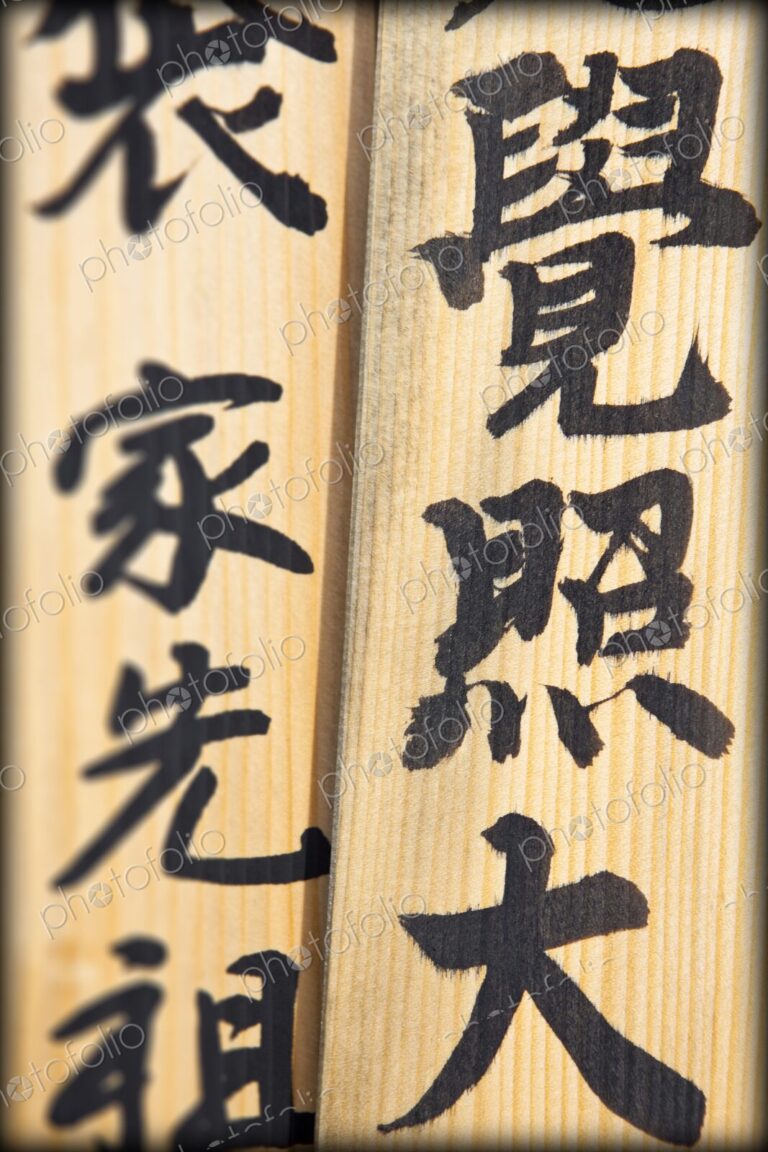 覺照大
家先祖
photofolio